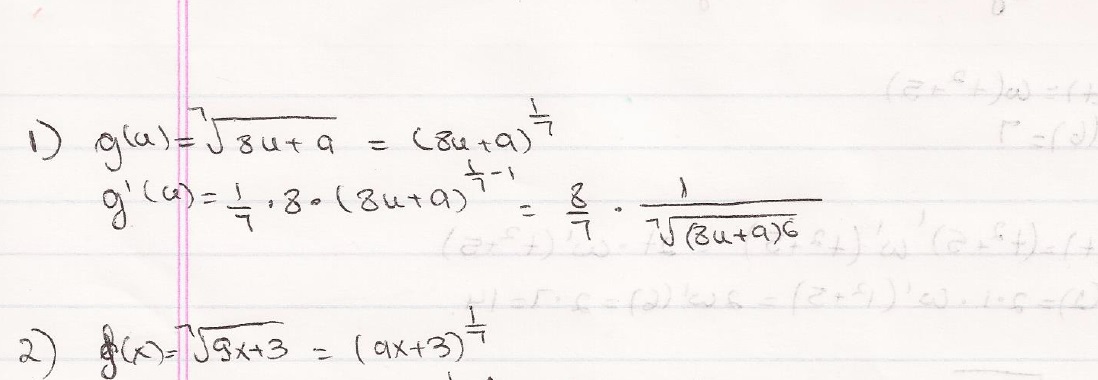 1) g(u) = ⁷√(8u+9) = (8u+9)^(1/7)
g'(u) = 1/7 · 8 · (8u+9)^(1/7 - 1) = 8/7 · 1/⁷√((8u+9)^6)
2) f(x) = ⁷√(9x+3) = (9x+3)^(1/7)